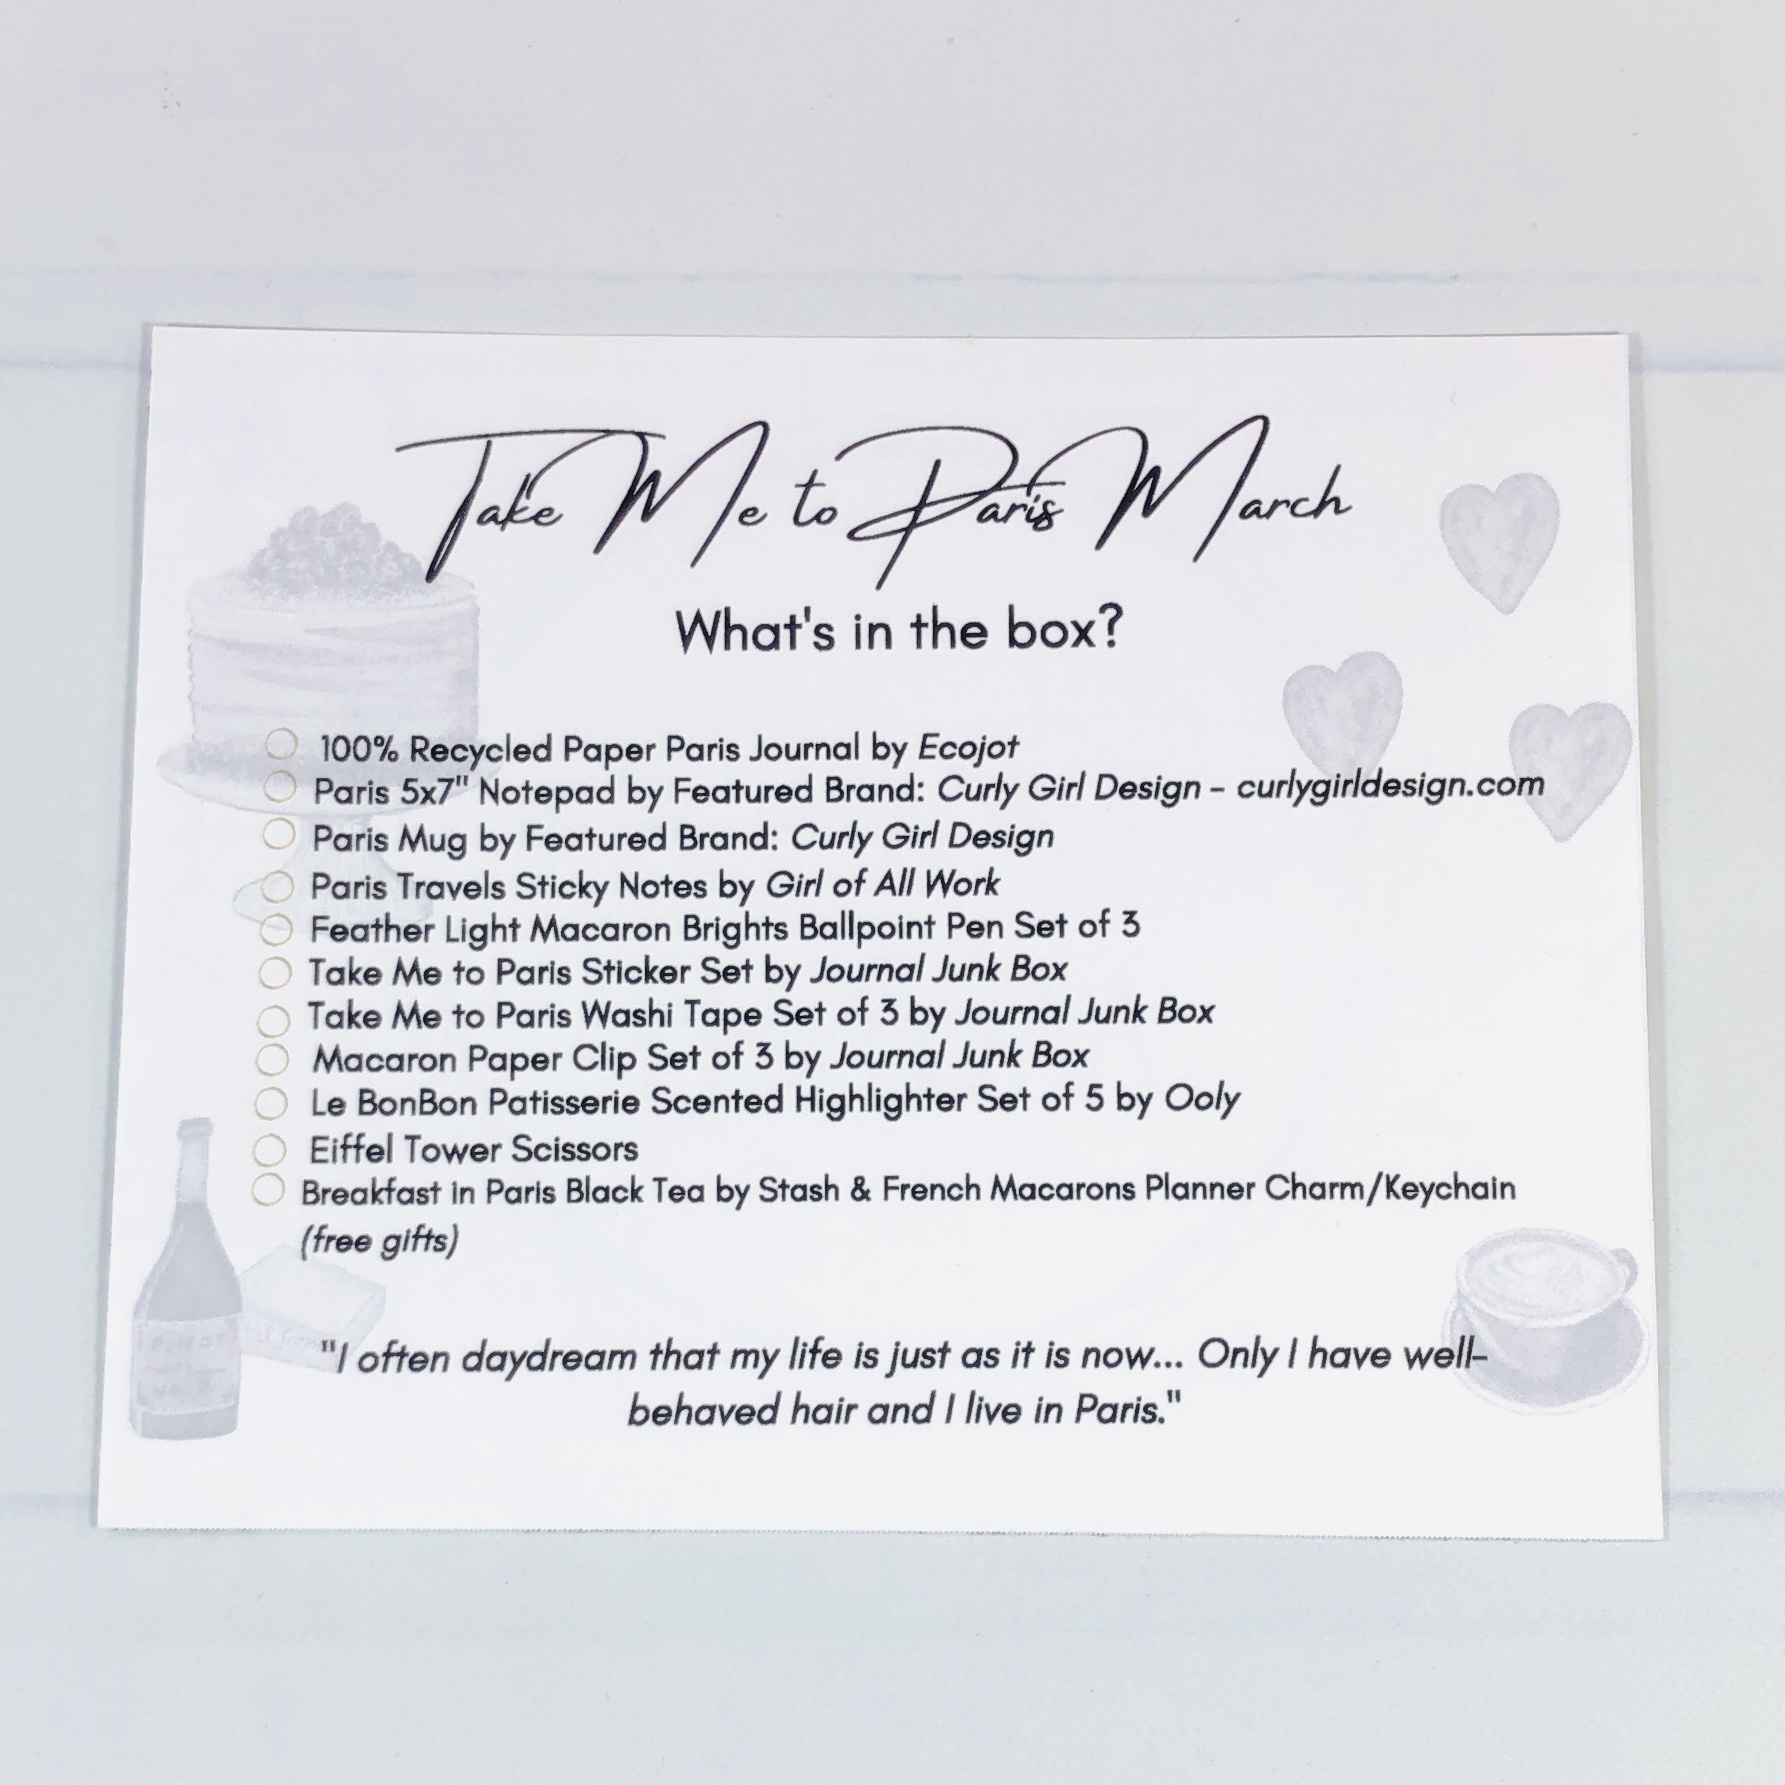 Take Me to Paris March
What's in the box?
100% Recycled Paper Paris Journal by Ecojot
Paris 5x7" Notepad by Featured Brand: Curly Girl Design - curlygirldesign.com
Paris Mug by Featured Brand: Curly Girl Design
Paris Travels Sticky Notes by Girl of All Work
Feather Light Macaron Brights Ballpoint Pen Set of 3
Take Me to Paris Sticker Set by Journal Junk Box
Take Me to Paris Washi Tape Set of 3 by Journal Junk Box
Macaron Paper Clip Set of 3 by Journal Junk Box
Le BonBon Patisserie Scented Highlighter Set of 5 by Ooly
Eiffel Tower Scissors
Breakfast in Paris Black Tea by Stash & French Macarons Planner Charm/Keychain
(free gifts)
"I often daydream that my life is just as it is now... Only I have well-
behaved hair and I live in Paris."